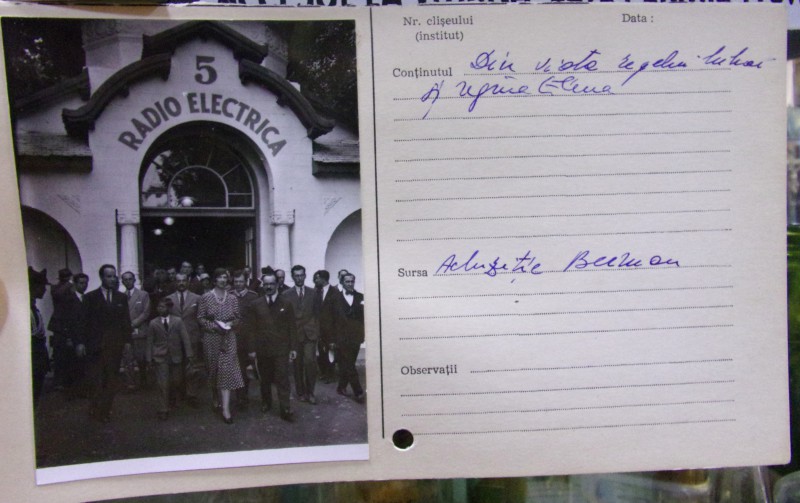 5
RADIO ELECTRICA
Nr. clișeului
(institut)
Data :
Conținutul Din vizita regelui Mihai
și regina Elena
Sursa Achiziție Berman
Observații